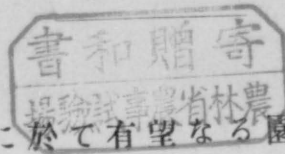 書和贈寄
場驗試事農省林農
に於て有望なる園